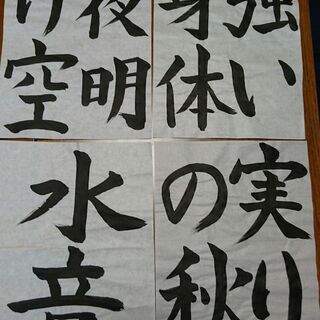 強い
身体
夜明
け空
実り
の秋
水音